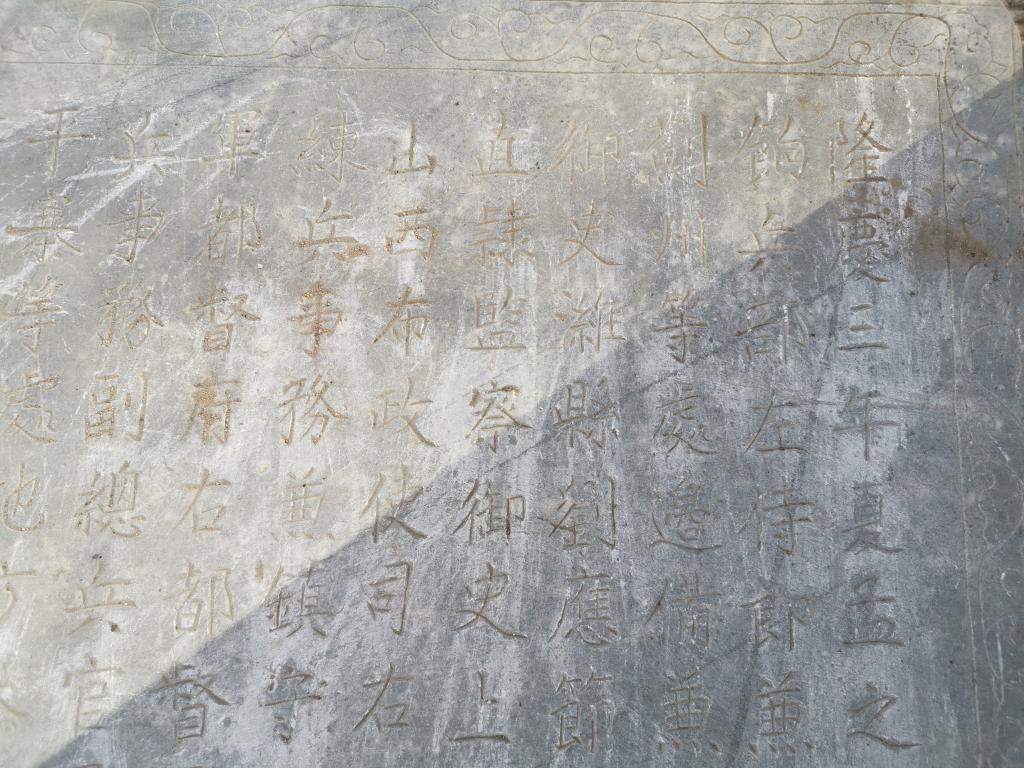 隆慶三年夏孟之
餉兵部左侍郎兼
薊州等處邊備兼
御史濰縣劉應節
直隸監察御史上
山西布政使司右
練兵事務兼鎮守
軍都督府右都督
兵事務副總兵官
于寨等處地方